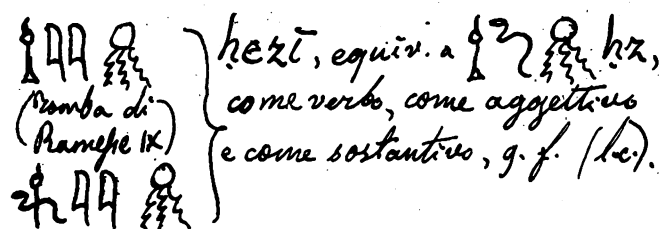 (Tomba di
Ramesse IX)
ḥezī, equiv. a ḥz,
come verbo, come aggettivo
e come sostantivo, g. f. (l.c.).